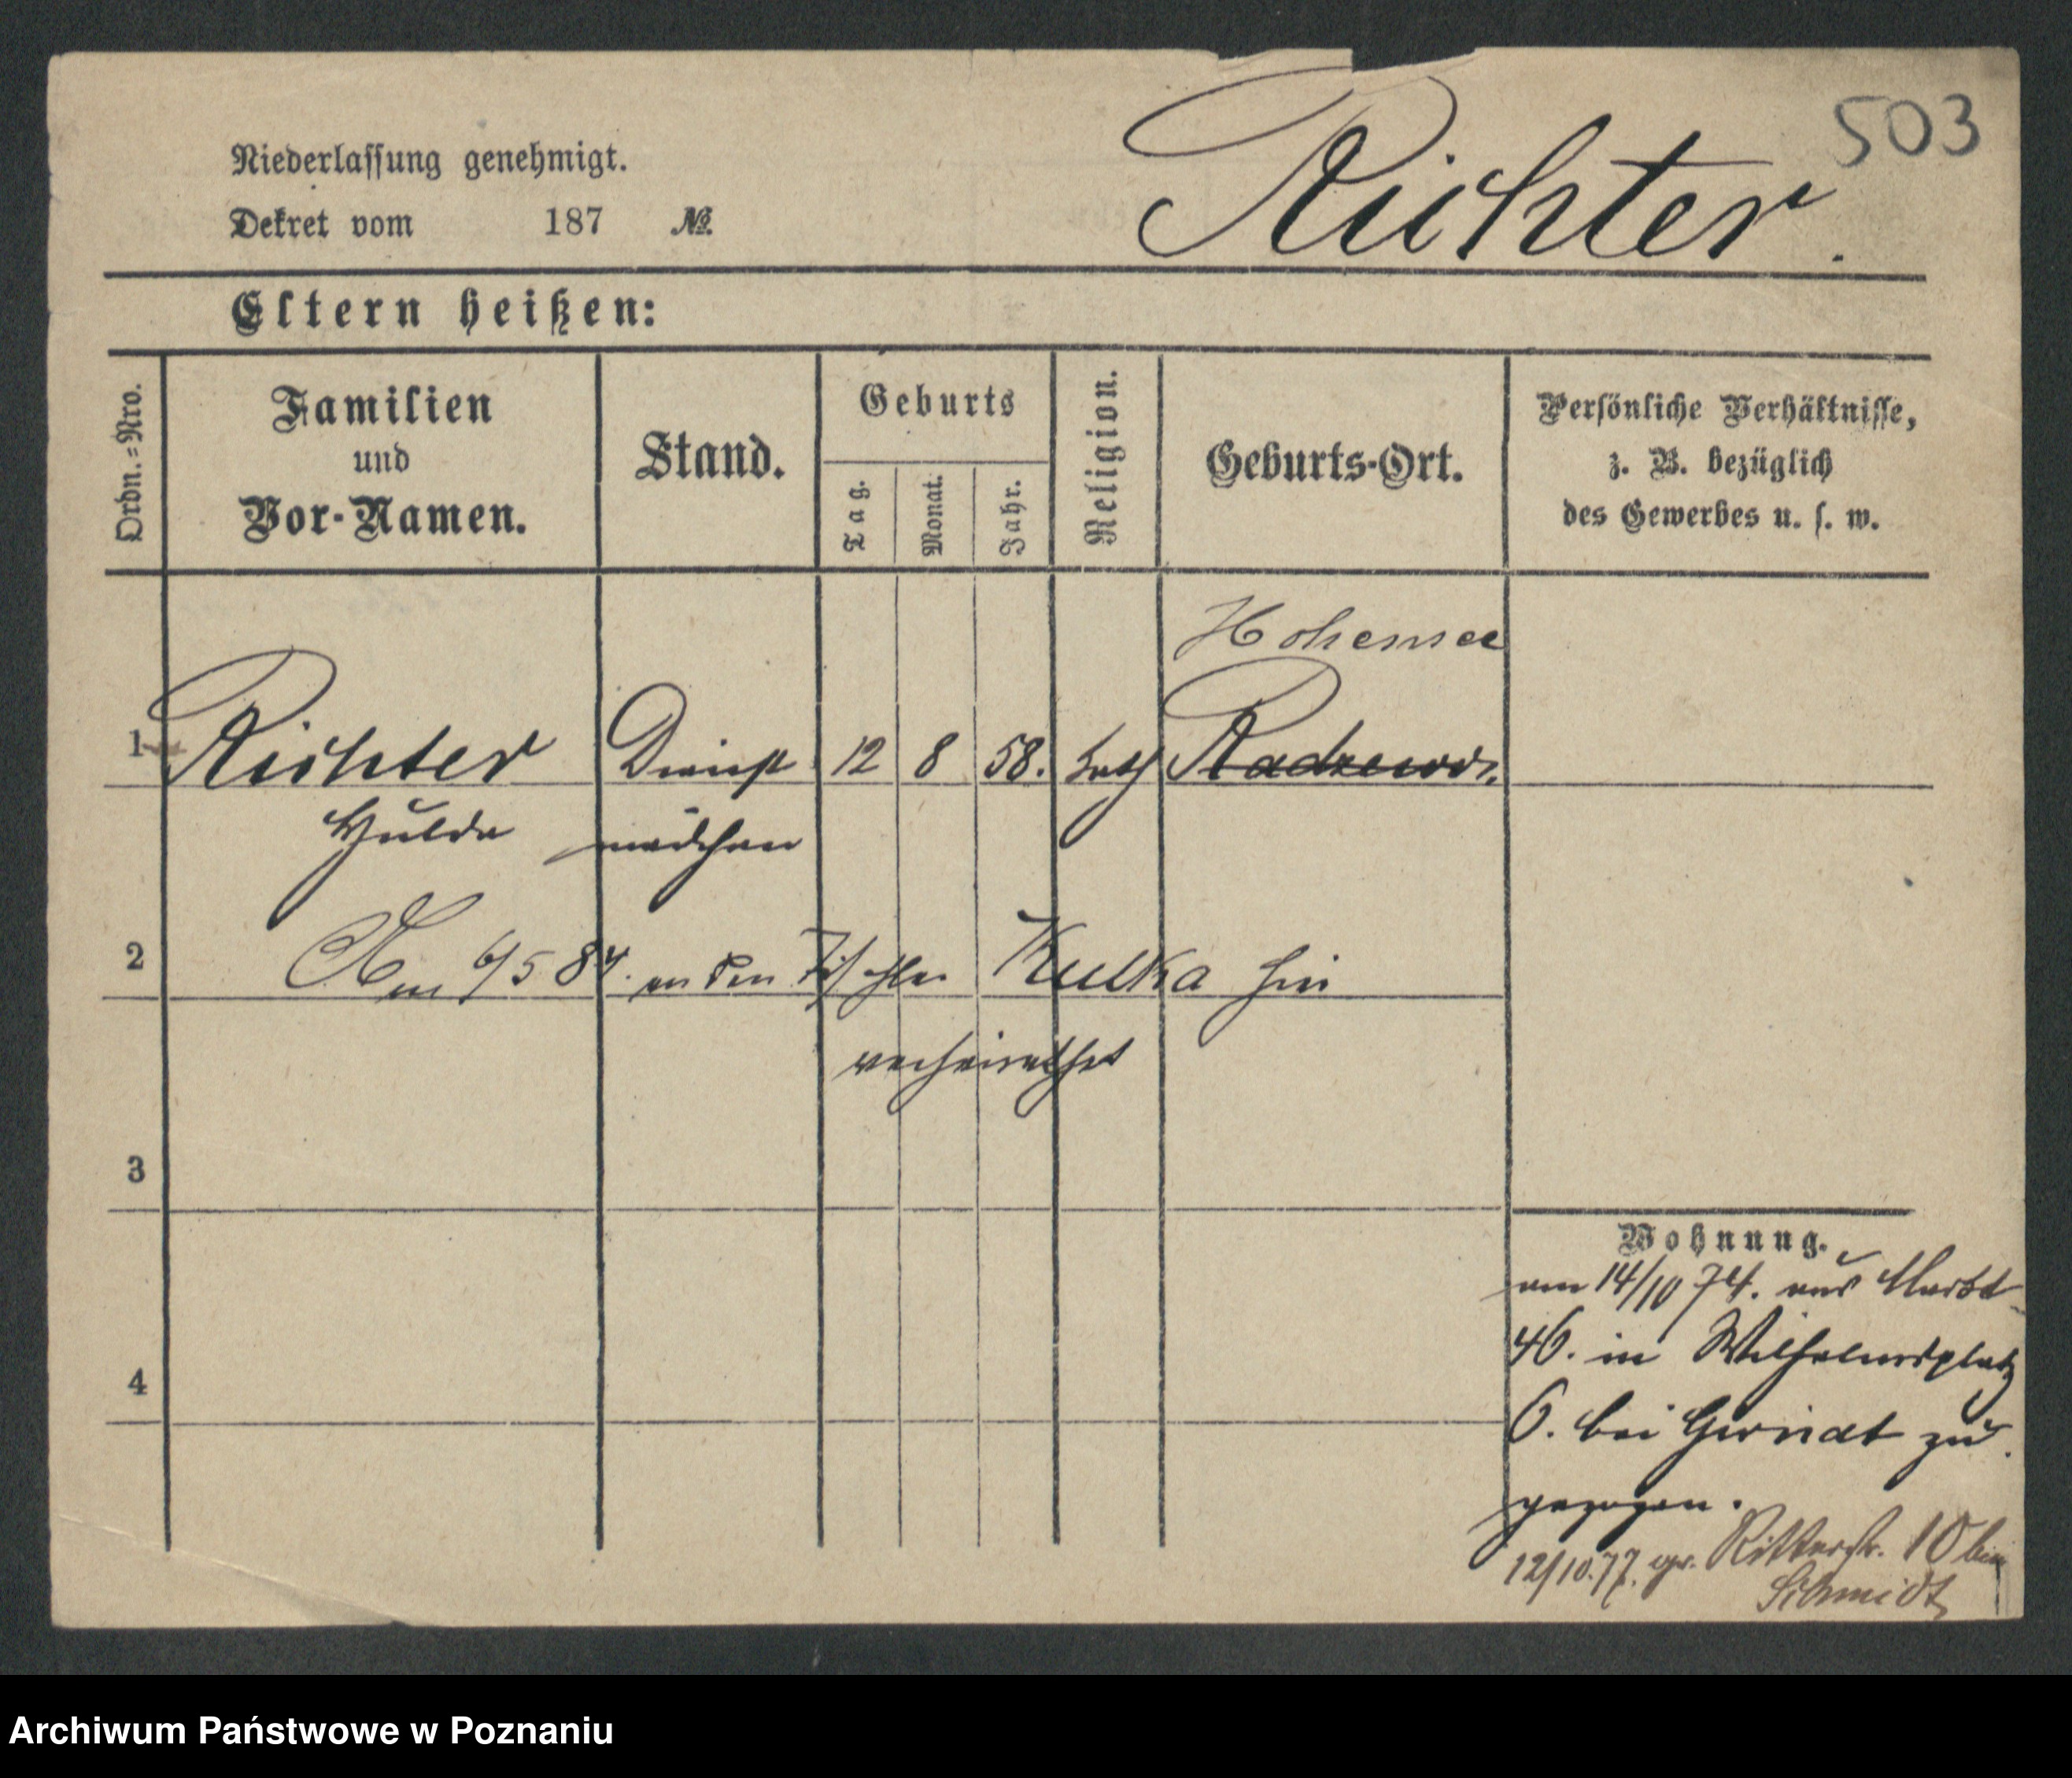 503
Richter.
Niederlassung genehmigt.
Dekret vom 187 №
Eltern heißen:
Ordn.=Nro.
Familien
und
Vor-Namen.
Stand.
Geburts
Tag.
Monat.
Jahr.
Religion.
Geburts-Ort.
Persönliche Verhältnisse,
z. B. bezüglich
des Gewerbes u. s. w.
Hohensee
1 Richter Dienst 12 8 58. kath
Hulda mädchen
2 Am 6/5 84. an den Tischler Kulka hier
verheirathet
3
4
Wohnung.
am 14/10 74. aus Markt
46. in Wilhelmsplatz
6. bei zu
gezogen.
12/10.77. Ritterstr. 10 bei
Schmidt
Archiwum Państwowe w Poznaniu